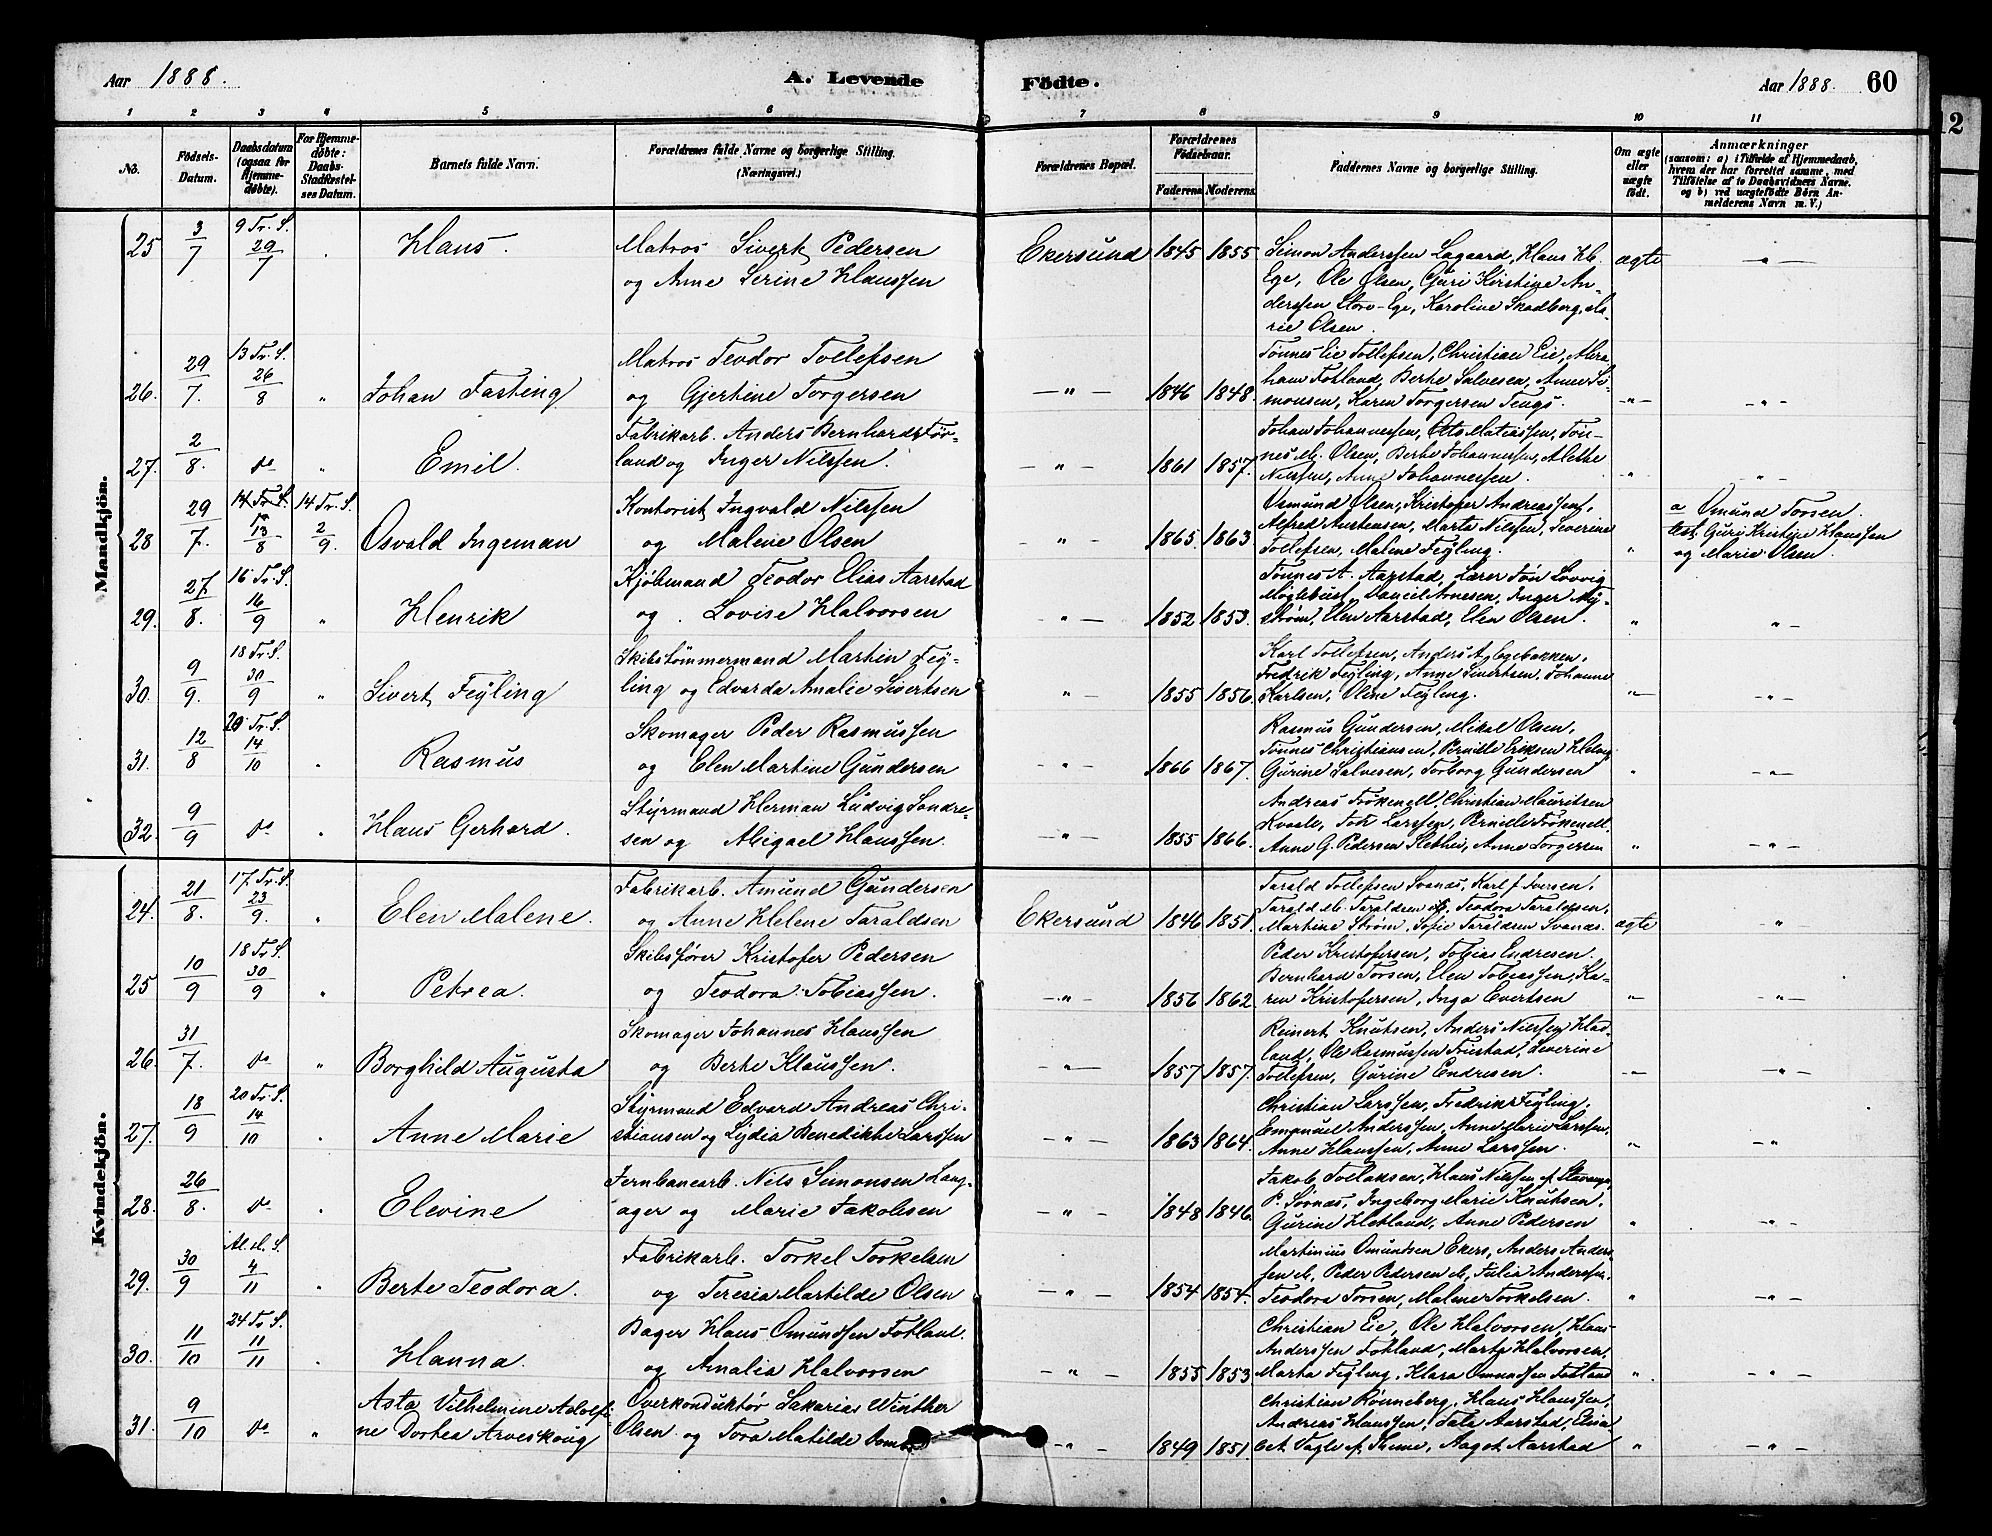 Aar 1888.
A. Levende Födte.
Aar 1888.
60
12
1 2 3 4 5 6 7 8 9 10 11
No.
Födsels-Datum.
Daabsdatum (ogsaa for Hjemmedöbte).
For Hjemmedöbte: Daabs-Stadfæstelses Datum.
Barnets fulde Navn.
Forældrenes fulde Navne og borgerlige Stilling.
(Næringsvei.)
Forældrenes Bopæl.
Forældrenes Födselsaar.
Faderens Moderens
Faddernes Navne og borgerlige Stilling.
Om ægte eller uægte födt.
Anmærkninger
(saasom: a) i Tilfælde af Hjemmedaab, hvem der har forrettet samme, med Tilföielse af to Daabsvidners Navne, og b) ved uægtefödte Börn Anmelderens Navn m. V.)
Mandkjön.
25 3/7 9 Tr. S. 29/7 Hans. Matros Sivert Pedersen
og Anne Serine Hanssen
Ekersund 1845 1855 Simon Anderssen Lagaard, Hans H.
Ege, Ole Olsen, Guri Kirstine An-
derssen Store-Ege, Karoline Skadberg, Ma-
rie Olsen. ægte "
26. 29/7. 13 Tr. S. 26/8 " Johan Fasting Matros Teodor Tollefsen
og Gjertine Torgersen
— " — 1846 1848. Tönnes Eie Tollefsen, Christian Eie, Abra-
ham Fotland, Berte Salvesen, Anne Si-
monsen, Karen Torgersen Tengs. — " —
27. 2/8. do " Emil. Fabrikarb. Anders Bernhards. Før-
land og Inger Nilssen.
— " — 1861 1857. Johan Johannessen, Otto Matiassen, Tön-
nes M. Olsen, Berte Johannessen, Alethe
Nilssen, Anne Johannessen. "
28 29/7. 14 Tr. S. 13/8 14 Tr. S. 2/9. Osvald Ingeman Kontorist Ingvald Nilssen
og Malene Olsen
— " — 1865. 1863 Osmund Olsen, Kristofer Andreassen,
Alfred Austensen, Marta Nilssen, Severine
Tollefsen, Malene Feyling. " a Omund Torsen.
Test. Guri Kristine Hanssen
og Marie Olsen.
29. 27/8. 16 Tr. S. 16/9 " Henrik Kjøbmand Teodor Elias Aarstad
og Lovise Halvorsen
" — 1852 1853. Tönnes A. Aarstad, Lærer Jön Lovvig
Møglebust, Daniel Arnesen, Inger Ny-
strøm, Elen Aarstad, Elen Olsen. " " —
30. 9/9. 18 Tr. S. 30/9 " Sivert Feyling Skibstømmermand Martin Fey-
ling og Edvarda Amalie Sivertsen
" — 1855 1856. Karl Tollefsen, Anders Aylgebakken,
Fredrik Feyling, Anne Sivertsen, Johanne
Karlsen, Oline Feyling. " — " —
31. 12/8 20 Tr. S. 14/10 Rasmus Skomager Peder Rasmussen
og Elen Martine Gundersen
— " — 1866 1867. Rasmus Gundersen, Mikal Olsen,
Tönnes Christiansen, Pernille Eriksen
Gurine Salvesen, Torborg Gundersen " — " —
32. 9/9 do " Hans Gerhard. Styrmand Herman Ludvig Sondre-
sen og Abigael Hanssen.
" — 1855 1866. Andreas Frøkenell, Christian Mauritsen
Kvaale, Tor Larssen, Pernille Frøkenell.
Anne G. Pedersen Slethei, Anne Torgersen " — " —
Kvindekjön.
24. 21/8. 17. Tr. S. 23/9. " Elen Malene. Fabrikarb. Amund Gundersen
og Anne Helene Taraldsen
Ekersund 1846 1851. Tarald Tollefsen Svanæs, Karl J. Iversen,
Tarald M. Taraldsen, Teodora Taraldsen,
Martine Strøm, Sofie Taraldsen Svanæs. ægte "
25 10/9 18 Tr. S. 30/9 " Petrea. Skibsfører Kristofer Pedersen
og Teodora Tobiassen.
— " — 1856 1862. Peder Kristofersen, Tobias Endresen.
Bernhard Torsen, Elen Tobiassen, Ka-
ren Kristofersen, Inga Evertsen " — " —
26. 31/7. do " Borghild Augusta Skomager Johannes Hanssen
og Berte Klaussen.
— " — 1857 1857. Reinert Knutsen, Anders Nilssen Had-
land, Ole Rasmussen Frustad, Severine
Tollefsen, Gurine Endresen. — " — — " —
27. 18/9 20 Tr. S. 14/10 " Anne Marie Styrmand Edvard Andreas Chri-
stiansen og Lydia Benedikte Larssen
— " — 1863 1864. Christian Larssen, Fredrik Feyling,
Emanuel Anderssen, Anne Marie Larssen,
Anne Hanssen, Anne Larssen. " — " —
28. 26/8. do " Elevine Jernbanearb. Nils Simonsen Lang-
ager og Marie Jakobsen
— " — 1848 1846. Jakob Tollaksen, Hans Nilssen pt. Stavanger
P. Sørnæs, Ingeborg Marie Knutsen,
Gurine Hetland, Anne Pedersen " — " —
29. 30/9 Al. H. S. 4/11 " Berte Teodora. Fabrikarb. Torkel Torkelsen
og Teresia Martilde Olsen
— " — 1854 1854. Martinius Omundsen Ekers, Anders Anders-
sen M, Peder Pedersen M, Julia Anderssen,
Teodora Torsen, Malene Torkelsen. " — " —
30. 11/10 24 Tr. S. 11/11 " Hanna. Bager Hans Omundsen Fotland.
og Amalia Halvorsen
— " — 1855 1853 Christian Eie, Ole Halvorsen, Hans
Anderssen Fotland, Marta Halvorsen,
Marta Feyling, Klara Omundsen Fotland " — " —
31. 9/10 do " Asta Vilhelmine Adolfi-
ne Dortea Arveskoug Overkonduktør Sakarias Winther
Olsen og Tora Matilde
— " — 1849 1851. Christian Rönneberg, Hans Hanssen,
Andreas Hanssen, Tala Aarstad, Elisa-
bet Vagle pt. Theme, Aagot Aarstad " — " —